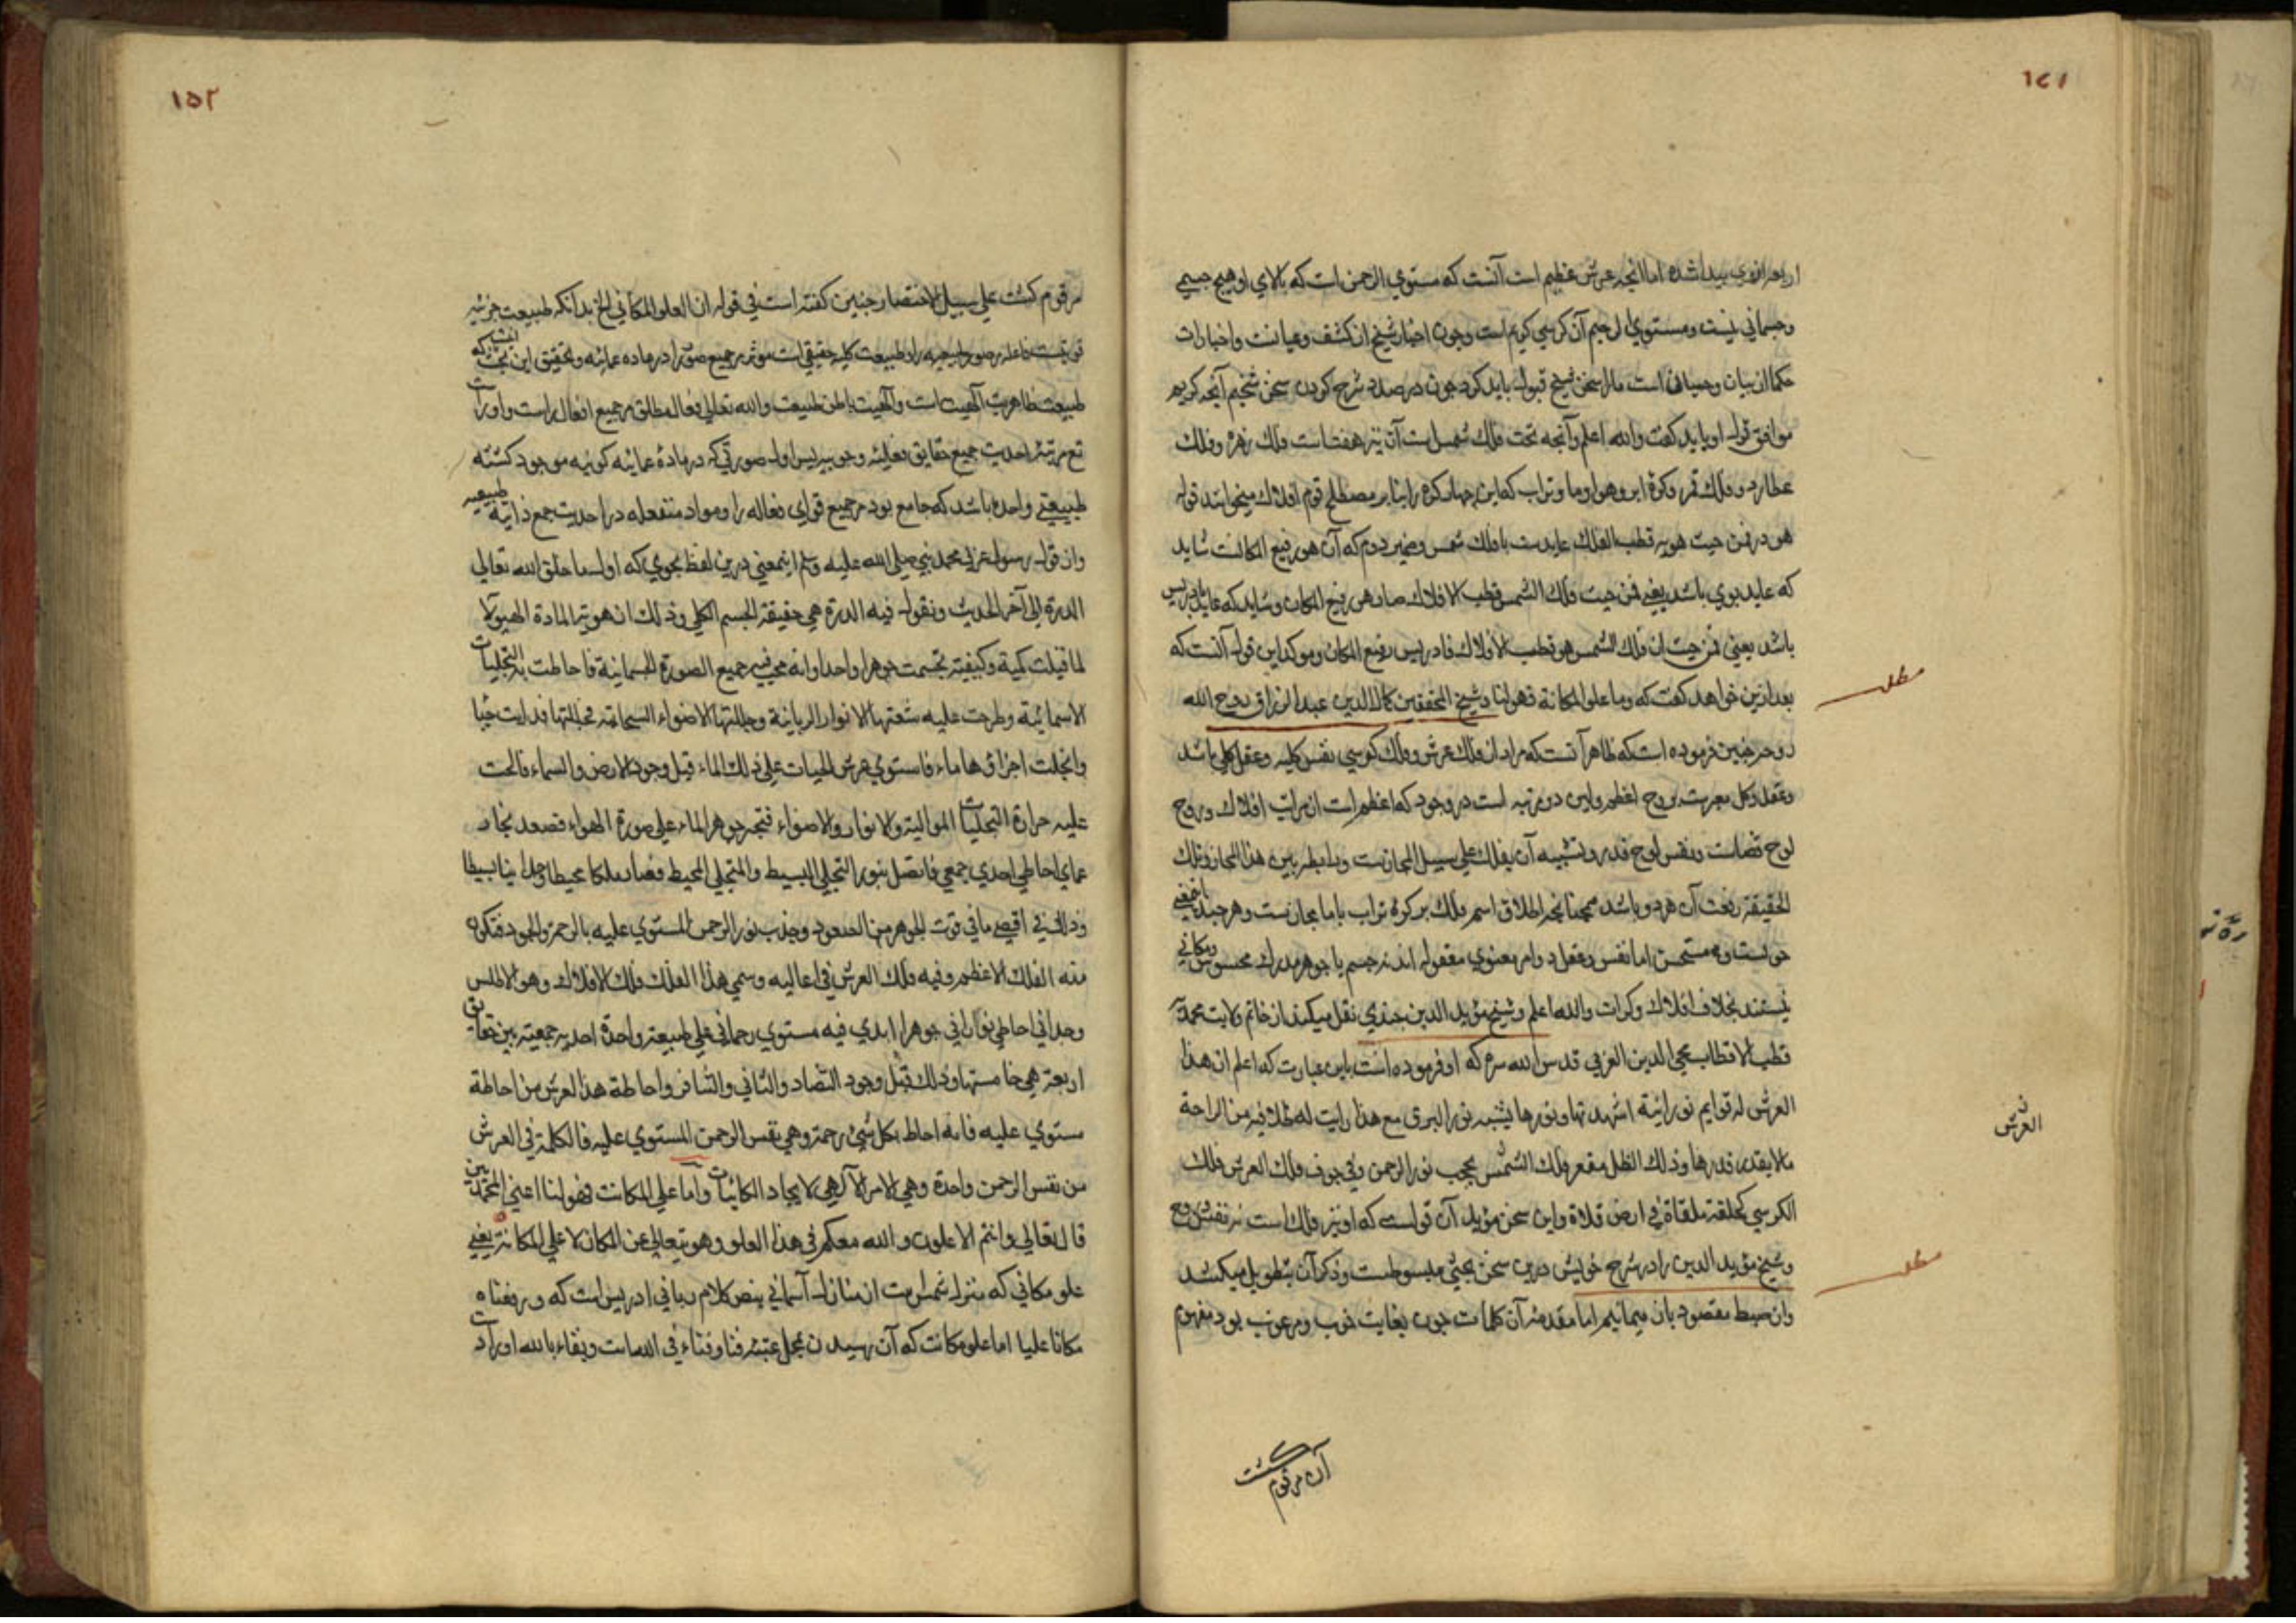 ١٤١
اربعه ازوی پیدا شده اما آنچه عرش عظیم است آنست که مستوی الرحمن است که بالای او هیچ جسمی
و جسمانی نیست و مستوی الرحیم آن کرسی کریم است و چون اخبار شیخ از کشف و عیانست و اخبارات
حکما از بیان و حسبان است ما را سخن شیخ قبول باید کرد چون در صدد شرح کردن سخن شیخیم آنچه کریم
موافق قول او باید گفت والله اعلم و آنچه تحت فلك شمس است آن نیز هفت است فلك زهره و فلك
عطارد و فلك قمر و کره اثیر و هوا و ما و تراب که این چهار کره را بنابر مصطلح قوم افلاك میخوانند قوله
هو در فمن حیث هو به قطب الفلك عایدست با فلك شمس و ضمیر دوم که آن هو رفیع المکانست شاید
که عاید بوی باشد یعنی فمن حیث فلك الشمس قطب الافلاك صار هو رفیع المکان و شاید که عاید بادریس
باشد یعنی فمن حیث ان فلك الشمس هو قطب الافلاك فادریس رفیع المکان و موکد این قول آنست که
بعد ازین خواهد گفت که و ما علو المکانة فهو لنا و شیخ المحققین کمال الدین عبد الرزاق روح الله
مطلب
روحه چنین فرموده است که ظاهر آنست که مراد از فلك عرش و فلك کرسی نفس کلیه و عقل کلی باشد
و عقل کل معبرست بروح اعظم و این دو مرتبه است در وجود که اعظم است از مراتب افلاك و روح
لوح قضاست و نفس لوح قدر و تشبیه آن بفلك علی سبیل المجازست و رابطه بین هذا المجاز و تلك
الحقیقة رفعت آن هر دو باشد همچنانچه اطلاق اسم فلك بر کره تراب با ما مجازست و هر چند این معنی
خوبست و مستحسن اما نفس و عقل دو امر معنوی معقول اند نه جسم یا جوهر مدرك محسوس و مکانی
نیستند بخلاف افلاك و کرات والله اعلم و شیخ مؤید الدین جندی نقل میکند از خاتم ولایت محمدیه
قطب الاقطاب محیی الدین العربی قدس الله سره که او فرموده است باین عبارت که اعلم ان هذا
العرش له قوایم نورانیة اشهدتها و نورها یشبه نور البرق مع هذا رایت له ظلا فیه من الراحة
العرش
ما لا یقدر قدرها و ذلك الظل مقعر فلك الشمس بحجب نور الرحمن و فی جوف فلك العرش فلك
الکرسی کحلقة ملقاة فی ارض فلاة و این سخن مؤید آن قولست که او نیز فلك است نه نفس و روح
و شیخ مؤید الدین را در شرح خویش درین سخن بحثی مبسوطست و ذکر آن بتطویل میکشد
مطلب
و از ضبط مقصود باز میمانیم اما مقدمه آن کلمات چون بغایت خوب و مرغوب بود مفهوم
آن مرقوم گشت
١٥٢
مرقوم گشت علی سبیل الاختصار چنین گفته است فی قوله ان العلو المکانی الخ بدانکه طبیعت جزئیه
قوتیست فاعله بر صور طبیعیه را و طبیعت کلیه حقیقی است موثر بر جمیع صور را در ماده عمائیه و تحقیق این بحث آنست که
طبیعت ظاهریت الهیت است و الهیت باطن طبیعت والله تعالی فعال مطلق بر جمیع افعال راست و او راست
تع مرتبهٔ احدیت جمیع حقایق فعلیه وجوبیه پس اول صورتی که در مادهٔ عمائیه کونیه موجود گشته
طبیعتی واحده باشد که جامع بود مر جمیع قوای فعاله را و مواد منفعله در احدیت جمع ذاتیه طبیعیه
و از قول رسول عزیز محمد نبی صلی الله علیه و سلم اینمعنی درین لفظ بجوی که اول ما خلق الله تعالی
الدرة الی آخر الحدیث و نقول فیه الدرة هی حقیقة الجسم الکلی و ذلك ان هویة المادة الهیولا
لما قبلت کمیة و کیفیة تجسمت جوهرا واحدا و انه محی فیه جمیع الصورة الجسمانیة فاحاطت به التجلیات
الاسمائیة و طرحت علیه شعتها الانوار الربانیة و جللتها الاضواء السبحانیة محالتها فذابت حیا
و انحلت اجزاؤها ماء فاستوی عرش الحیات علی ذلك الماء قبل وجود الارض و السماء فالحت
علیه حرارة التجلیات المتوالیة و الانوار و الاضواء فتبخر جوهر الماء علی صورة الهواء فصعد بخار
عمای احاطی احدی جمعی فاتصل بنور التجلی البسیط و المتجلی المحیط فصار فلکا محیطا وحدانیا بسیطا
و ذلك فی اقصی ما فی قوت الجوهر من الصعود و جذب نور الرحمن المستوی علیه بالرحمة و الجود فتکون
منه الفلك الاعظم و فیه فلك العرش فی اعالیه و سمی هذا الفلك فلك الافلاك و هو الاطلس
وحدانی احاطی نورانی جوهرا ابدی فیه مستوی رحمانی علی طبیعة واحدة احدیة جمعیة بین حقایق
اربعة هی خامستها و ذلك قبل وجود التضاد و التنافی و التنافر و احاطة هذا العرش من احاطة
مستوی علیه فانه احاط بکل شیٔ رحمة و هی نفس الرحمن المستوی علیه فالکلمة فی العرش
من نفس الرحمن واحدة و هی الامر الآلهی لایجاد الکائنات و اما علی المکانت فهو لنا اعنی المحمدیین
قال تعالی و انتم الاعلون والله معکم فی هذا العلو و هو یتعالی عن المکان لا علی المکانة یعنی
علو مکانی که منزل شمس است از منازل آسمانی بنص کلام ربانی ادریس است که و رفعناه
مکانا علیا اما علو مکانت که آن رسیدن بمحل عتبهٔ فنا و فناء فی الله است و بقاء بالله او راست